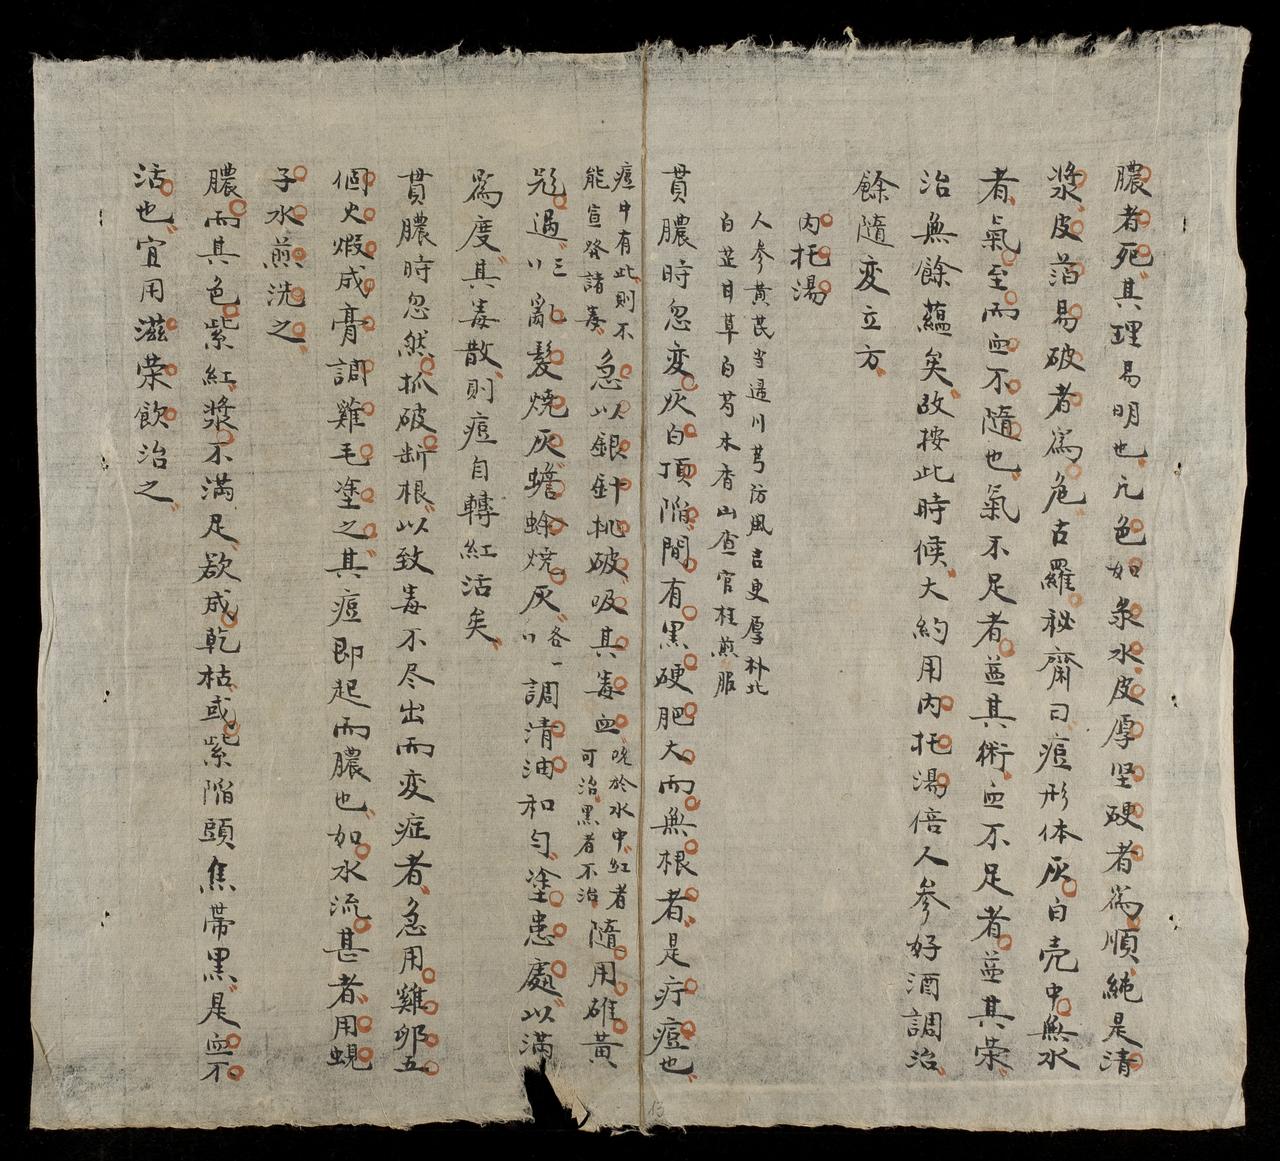 膿者死其理易明也凢色如泉水皮厚坚硬者為順純是清
漿皮萡易破者為危古羅祕齋曰痘形体灰白壳中無水
者氣至而血不隨也氣不足者益其術血不足者益其荣
治無餘蘊矣故按此時候大約用内托湯倍人参好酒調治
餘隨变立方
内托湯
人参黄芪当归川芎防風吉更厚朴北
白芷甘草白芍木香山查官桂煎服
貫膿時忽变灰白頂陥間有黒硬肥大而無根者是疔痘也
痘中有此則不
能宣發諸毒
急以銀針挑破吸其毒血
吮於水中紅者
可治黒者不治
隨用雄黄
過三亂髮燒灰蟾蜍燒灰各一調清油和匀塗患處以満
為度其毒散則痘自轉紅活矣
貫膿時忽然抓破断根以致毒不尽出而変症者急用雞卵五
個火煅成膏調雞毛塗之其痘即起而膿也如水流甚者用蜆
子水煎洗之
膿而其色紫紅漿不満足欲成乾枯或紫陥頭焦帶黒是血不
活也宜用滋荣飲治之